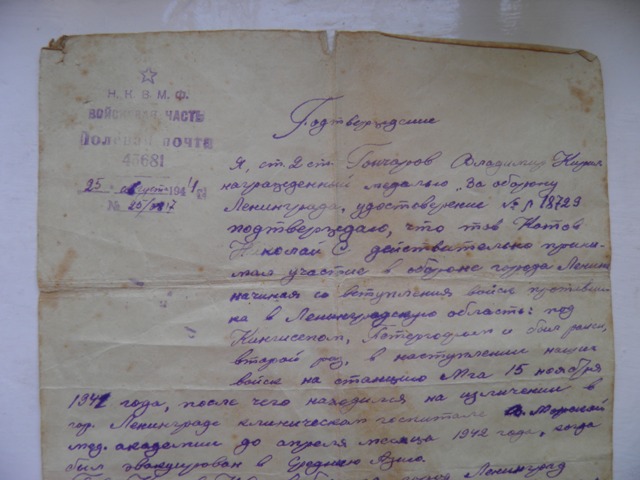 Н. К. В. М. Ф.
ВОЙСКОВАЯ ЧАСТЬ
Полевая почта
45681
25 август 1944 г.
№ 25/
Подтверждение
Я, ст. 2 ст. Гончаров Владимир
награжденный медалью „За оборону
Ленинграда, удостоверение № 18729
подтверждаю, что тов Котов
Николай С действительно прини-
мал участие в обороне города
начиная со вступления войск противни-
ка в Ленинградскую область: под
Кингисепом, Петергофом и был ранен,
второй раз, в наступлении наших
войск на станцию Мга 15 ноября
1941 года, после чего находился на излечении в
гор. Ленинграде клиническом госпитале Морской
мед. академии до апреля месяца 1942 года, когда
был эвакуирован в Среднюю Азию.
город Ленинград